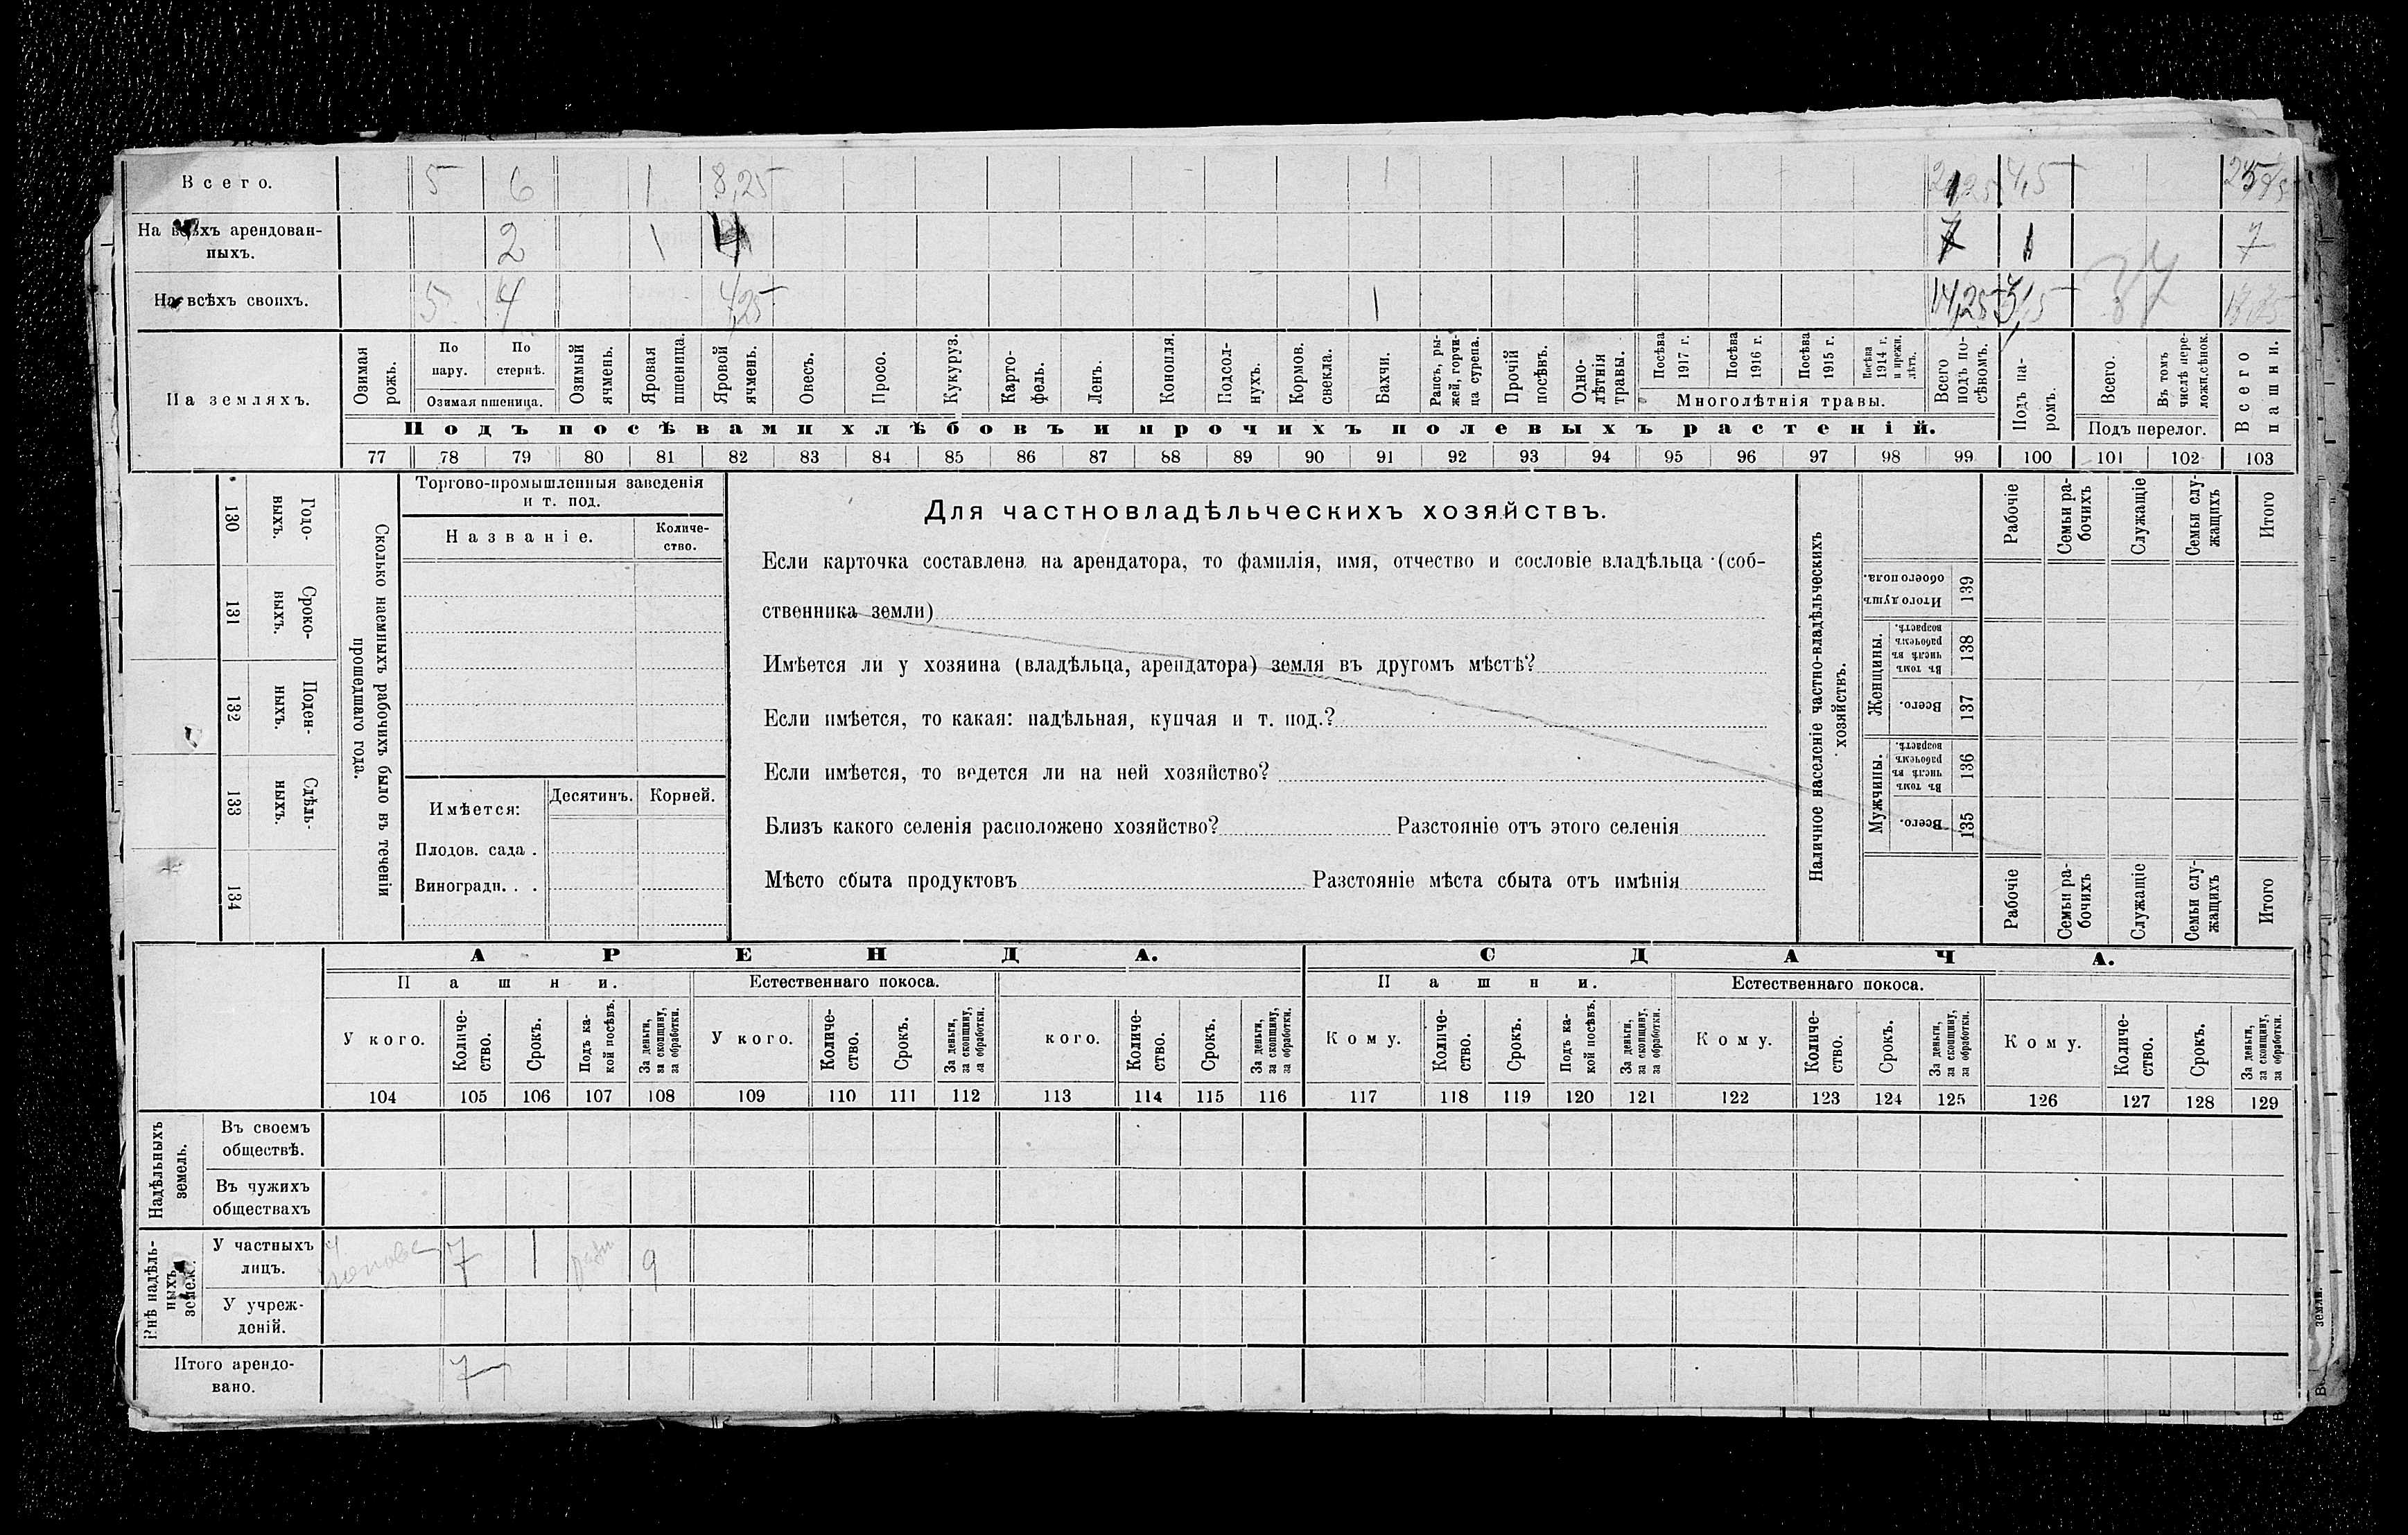 Всего. 5 6 1 8,25 1 4,5
На всѣхъ арендован-
ныхъ. 2 1 4 7 1 7
На всѣхъ своихъ. 5 4 4,25 1 14,25 3,5
37
На земляхъ.
Озимая рожь.
По пару.
По стернѣ.
Озимая пшеница.
Озимый ячмень.
Яровая пшеница.
Яровой ячмень.
Овесъ.
Просо.
Кукуруз.
Карто-
фель.
Ленъ.
Конопля.
Подсол-
нухъ.
Кормов.
свекла.
Бахчи.
Рапсъ, ры-
жей, горчи-
ца сурепа.
Прочій
посѣвъ.
Одно-
лѣтнія
травы.
Посѣва
1917 г.
Посѣва
1916 г.
Посѣва
1915 г.
Посѣва
1914 г.
и прежн.
лѣтъ.
Многолѣтнія травы.
Всего
подъ по-
сѣвомъ.
Подъ па-
ромъ.
Всего.
Въ томъ
числѣ пере-
ложн.сѣнок.
Подъ перелог.
Всего
пашни.
Подъ посѣвами хлѣбовъ и прочихъ полевыхъ растеній.
77 78 79 80 81 82 83 84 85 86 87 88 89 90 91 92 93 94 95 96 97 98 99 100 101 102 103
Годо-
выхъ.
130
Сроко-
выхъ.
131
Поден-
ныхъ.
132
Сдѣль-
ныхъ.
133
134
Сколько наемныхъ рабочихъ было въ теченіи
прошедшаго года.
Торгово-промышленныя заведенія
и т. под.
Названіе.
Количе-
ство.
Имѣется:
Десятинъ. Корней.
Плодов. сада .
Виноградн. . .
Для частновладѣльческихъ хозяйствъ.
Если карточка составлена на арендатора, то фамилія, имя, отчество и сословіе владѣльца (соб-
ственника земли)
Имѣется ли у хозяина (владѣльца, арендатора) земля въ другомъ мѣстѣ?
Если имѣется, то какая: надѣльная, купчая и т. под.?
Если имѣется, то ведется ли на ней хозяйство?
Близъ какого селенія расположено хозяйство? Разстояніе отъ этого селенія
Мѣсто сбыта продуктовъ Разстояніе мѣста сбыта отъ имѣнія
Наличное населеніе частно-владѣльческихъ
хозяйствъ.
Рабочіе
Семьи ра-
бочихъ
Служащіе
Семьи слу-
жащихъ
Итого
Итого душъ
обоего пола.
139
Женщины.
Въ томъ
числѣ въ
рабочемъ
возрастѣ.
138
Всего.
137
Мужчины.
Въ томъ
числѣ въ
рабочемъ
возрастѣ.
136
Всего.
135
Рабочіе
Семьи ра-
бочихъ
Служащіе
Семьи слу-
жащихъ
Итого
АРЕНДА. СДАЧА.
Пашни. Естественнаго покоса. Пашни. Естественнаго покоса.
У кого.
Количе-
ство.
Срокъ.
Подъ ка-
кой посѣвъ.
За деньги,
за скопщину,
за обработки.
У кого.
Количе-
ство.
Срокъ.
За деньги,
за скопщину,
за обработки.
кого.
Количе-
ство.
Срокъ.
За деньги,
за скопщину,
за обработки.
Кому.
Количе-
ство.
Срокъ.
Подъ ка-
кой посѣвъ.
За деньги,
за скопщину,
за обработки.
Кому.
Количе-
ство.
Срокъ.
За деньги,
за скопщину,
за обработки.
Кому.
Количе-
ство.
Срокъ.
За деньги,
за скопщину,
за обработки.
104 105 106 107 108 109 110 111 112 113 114 115 116 117 118 119 120 121 122 123 124 125 126 127 128 129
Надѣльныхъ
земель.
Въ своемъ
обществѣ.
Въ чужихъ
обществахъ
Внѣ надѣль-
ныхъ
земель.
У частныхъ
лицъ. 7 1 9
У учреж-
деній.
Итого арендо-
вано. 7
земли.